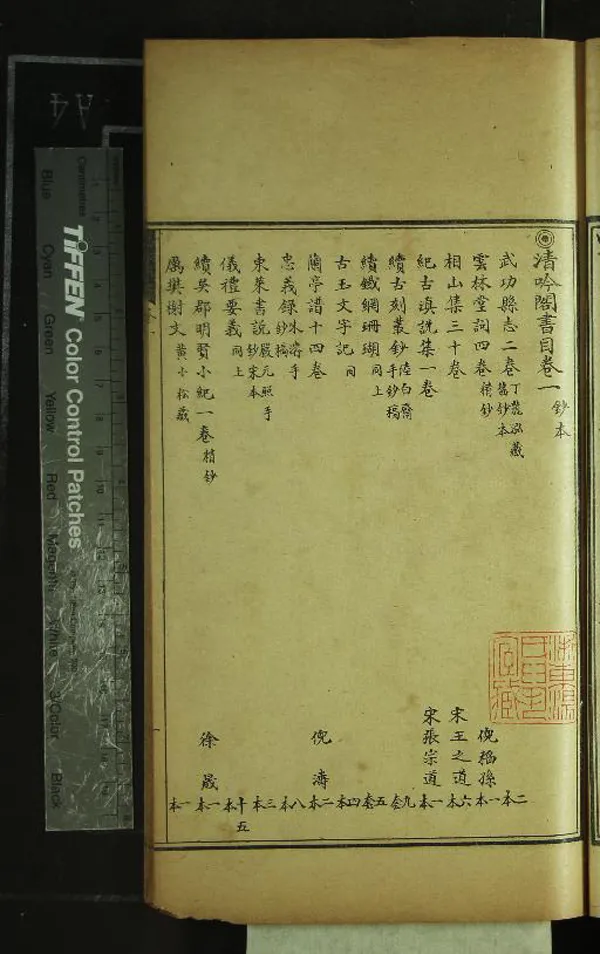 清吟閣書目卷一 鈔本
武功縣志二卷 丁龍泓藏舊鈔本 二本
雲林堂詞四卷 精鈔 倪稻孫 一本
相山集三十卷 宋王之道 六本
紀古滇說集一卷 宋張宗道 一本
續古刻叢鈔 陸白齋手鈔稿 九套
續鐵網珊瑚 同上 五套
古玉文字記 同 四本
蘭亭譜十四卷 倪濤 二本
忠義錄 朱 手鈔稿 八本
東萊書說 嚴元照手鈔宋本 三本
儀禮要義 同上 十五本
續吳郡明賢小紀一卷 精鈔 徐晟 一本
厲樊榭文 黃小松藏 一本
TIFFEN Color Control Patches
Centimetres
Blue
Cyan
Green
Yellow
Red
Magenta
White
3/Color
Black
A4